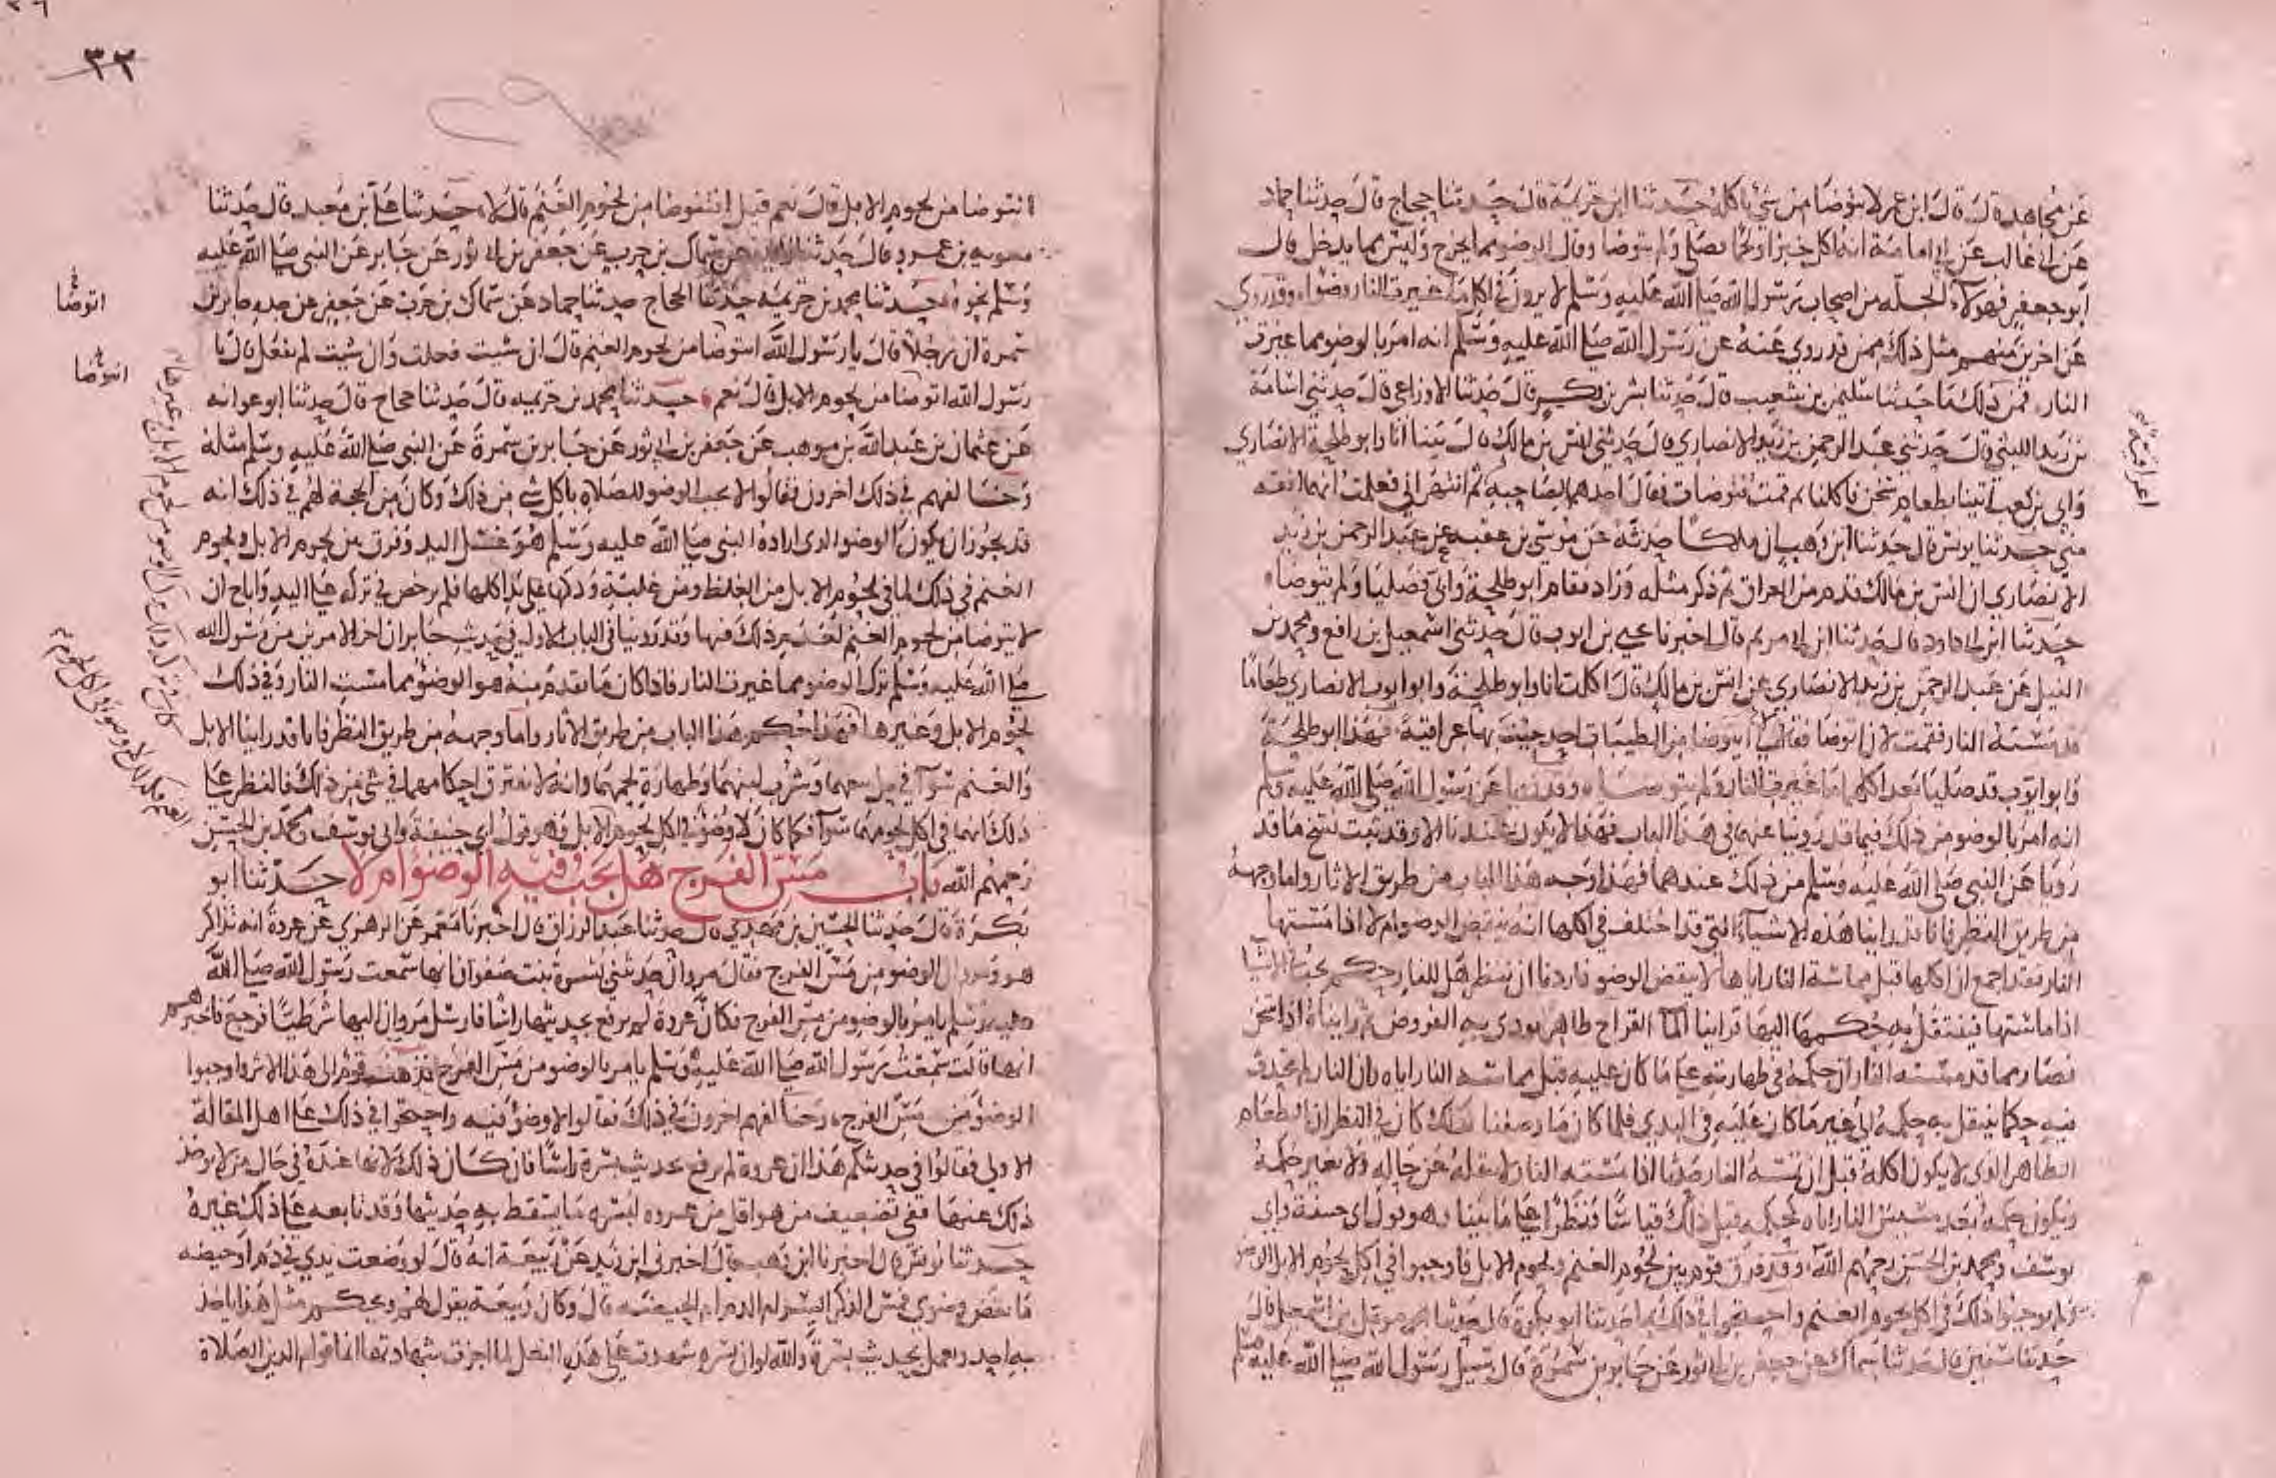 عن مجاهد قال قال ابن عمر لا نتوضا من شي ناكله حدثنا ابن خزيمة قال حدثنا حجاج قال حدثنا حماد
عن ابي غالب عن ابي امامة انه اكل خبزا ولحما فصلى ولم يتوضا وقال الوضو مما يخرج وليس مما يدخل قال
ابو جعفر فهولاء الجلة من اصحاب رسول الله صلى الله عليه وسلم لا يرون في اكل ما غيرت النار وضوا وقد روي
عن اخرين منهم مثل ذلك ممن قد روي عنه عن رسول الله صلى الله عليه وسلم انه امر بالوضو مما غيرت
النار فمن ذلك ما حدثنا سليمن بن شعيب قال حدثنا بشر بن بكر قال حدثنا الاوزاعي قال حدثني اسامة
بن زيد الليثي قال حدثني عبد الرحمن بن زيد الانصاري قال حدثني انس بن مالك قال بينا انا وابو طلحة الانصاري
وابي بن كعب اتينا بطعام سخن فاكلنا ثم قمت فتوضات فقال احدهما لصاحبه ثم انتهراني فعلمت انهما افقه
مني حدثنا يونس قال حدثنا ابن وهب ان ملكا حدثه عن موسى بن عقبه عن عبد الرحمن بن زيد
الانصاري ان انس بن مالك قدم من العراق ثم ذكر مثله وزاد فقام ابو طلحة وابي فصليا ولم يتوضا
حدثنا ابن ابي داود قال حدثنا ابن ابي مريم قال اخبرنا يحيى بن ايوب قال حدثني اسمعيل بن رافع ومحمد بن
النيل عن عبد الرحمن بن زيد الانصاري عن انس بن مالك قال اكلت انا وابو طلحة وابو ايوب الانصاري طعاما
قد مسته النار فقمت لان اتوضا فقالا لي اتتوضا من الطيبات لقد جيت بها عراقية فهذا ابو طلحة
وابو ايوب قد صليا بعد اكلهما مما غيرت النار ولم يتوضا وقد رويا عن رسول الله صلى الله عليه وسلم
انه امر بالوضو من ذلك فيما قد روينا عنهما في هذا الباب فهذا لا يكون عندنا الا وقد ثبت نسخ ما قد
رويا عن النبي صلى الله عليه وسلم من ذلك عندهما فهذا وجه هذا الباب من طريق الاثار واما وجهه
من طريق النظر فانا قد راينا هذه الاشياء التي قد اختلف في اكلها انه ينقض الوضو ام لا اذا مستها
النار فقد اجمع ان اكلها قبل مماسة النار اياها لا ينقض الوضو فاردنا ان ننظر هل للنار حكم يجب في الاشيا
اذا ماستها فينتقل به حكمها اليها فراينا الما القراح طاهر يودى به الفروض ثم رايناه اذا سخن
فصار مما قد مسته النار ان حكمه في طهارته على ما كان عليه قبل مماسة النار اياه وان النار لم تحدث
فيه حكما ينتقل به حكمه الى غير ما كان عليه في البدي فلما كان ما وصفنا كذلك كان في النظر ان الطعام
الطاهر الذي لا يكون اكله قبل ان تمسه النار حدثا اذا مسته النار لا ينقله عن حاله ولا يغير حكمه
ويكون حكمه بعد مسيس النار اياه كحكمه قبل ذلك قياسا ونظرا على ما بينا وهو قول ابي حنيفة وابي
يوسف ومحمد بن الحسن رحمهم الله وقد فرق قوم بين لحوم الغنم ولحوم الابل فاوجبوا في اكل لحوم الابل الوضو
ولم يوجبوا ذلك في اكل لحوم الغنم واحتجوا في ذلك بما حدثنا ابو بكرة قال حدثنا مومل بن اسمعيل قال
حدثنا سفين قال حدثنا سماك عن جعفر بن ابي ثور عن جابر بن سمرة قال سيل رسول الله صلى الله عليه وسلم
٣٢
انتوضا من لحوم الابل قال نعم قيل انتوضا من لحوم الغنم قال لا حدثنا علي بن معبد قال حدثنا
معويه بن عمرو قال حدثنا عن سماك بن حرب عن جعفر بن ابي ثور عن جابر عن النبي صلى الله عليه
وسلم نحوه حدثنا محمد بن خزيمه حدثنا الحجاج حدثنا حماد عن سماك بن حرب عن جعفر عن جده جابر بن
سمرة ان رجلا قال يا رسول الله اتوضا من لحوم الغنم قال ان شيت فعلت وان شيت لم تفعل قال يا
رسول الله اتوضا من لحوم الابل قال نعم حدثنا محمد بن خزيمه قال حدثنا حجاج قال حدثنا ابو عوانه
عن عثمان بن عبد الله بن موهب عن جعفر بن ابي ثور عن جابر بن سمرة عن النبي صلى الله عليه وسلم مثله
وخالفهم في ذلك اخرون فقالوا لا يجب الوضو للصلاه باكل شي من ذلك وكان من الحجة لهم في ذلك انه
قد يجوز ان يكون الوضو الذى اراده النبي صلى الله عليه وسلم هو غسل اليد وفرق بين لحوم الابل ولحوم
الغنم في ذلك لما في لحوم الابل من الغلظ ومن غلبة ودكها على يد اكلها فلم يرخص في تركه على اليد واباح ان
لا يتوضا من لحوم الغنم لعدم ذلك فيها وقد روينا في الباب الاول في حديث جابر ان اخر الامرين من رسول الله
صلى الله عليه وسلم ترك الوضو مما غيرت النار فاذا كان ما تقدم منه هو الوضو مما مست النار وفي ذلك
لحوم الابل وغيرها فهذا حكم هذا الباب من طريق الاثار واما وجهه من طريق النظر فانا قد راينا الابل
والغنم سوآ في حل بيعهما وشرب لبنهما وطهارة لحمهما وانه لا تفترق احكامهما في شي من ذلك فالنظر على
ذلك انهما في اكل لحومهما سوآ فكما كان لا وضو في اكل لحوم الابل وهو قول ابي حنيفة وابي يوسف ومحمد بن الحسن
رحمهم الله باب مس الفرج هل يجب فيه الوضؤ ام لا حدثنا ابو
بكرة قال حدثنا الحسين بن مهدي قال حدثنا عبد الرزاق قال اخبرنا معمر عن الزهري عن عروة انه تذاكر
هو ومروان الوضو من مس الفرج فقال مروان حدثتني بسرة بنت صفوان انها سمعت رسول الله صلى الله
عليه وسلم يامر بالوضو من مس الفرج فكان عروة لم يرفع بحديثها راسا فارسل مروان اليها شرطيا فرجع فاخبرهم
انها قالت سمعت رسول الله صلى الله عليه وسلم يامر بالوضو من مس الفرج فذهب قوم الى هذا الاثر واوجبوا
الوضو من مس الفرج وخالفهم اخرون في ذلك فقالوا لا وضؤ فيه واحتجوا في ذلك على اهل المقالة
الاولى فقالوا في حديثكم هذا ان عروة لم يرفع بحديث بسرة راسا فان كان ذلك لانها عنده في حال من لا يوخذ
ذلك عنها ففي تضعيف من هو اقل من عروه لبسره ما يسقط به حديثها وقد تابعه على ذلك غيره
حدثنا يونس قال اخبرنا ابن وهب قال اخبرني ابن زيد عن ربيعة انه قال لو وضعت يدي في دم او حيضه
ما نقض وضوي فمس الذكر ايسر ام الدم ام الحيضه قال وكان ربيعة يقول لهم ويحكم مثل هذا ياخذ
به احد ويعمل بحديث بسرة والله لو ان بسره شهدت على هذه النعل لما اجزت شهادتها انما قوام الدين الصلاة
اتوضا
اتوضا